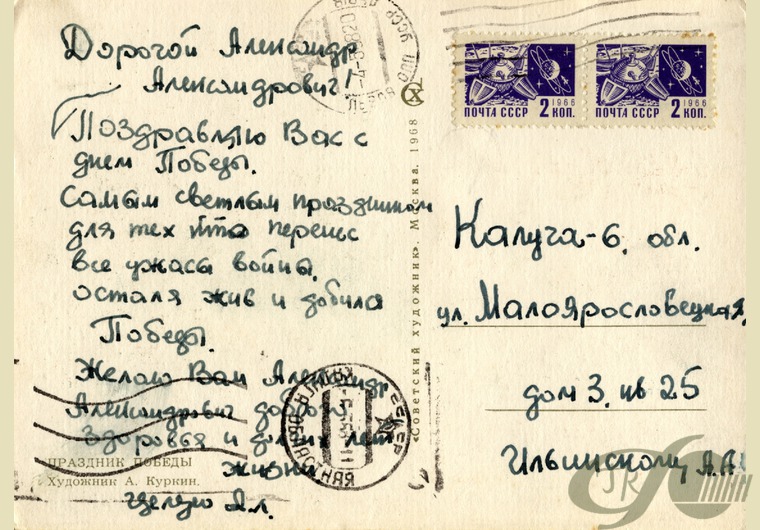 Дорогой Александр
Александрович!
Поздравляю Вас с
днем Победы.
Самым светлым праздником
для тех кто перенес
все ужасы войны,
остался жив и добился
Победы.
Желаю Вам Александр
Александрович доброго
здоровья и долгих лет
жизни
Целую
ПРАЗДНИК ПОБЕДЫ
Художник А. Куркин.
«Советский художник». Москва. 1968
1966
ПОЧТА СССР 2 КОП.
1966
ПОЧТА СССР 2 КОП.
Калуга-6, обл.
ул. Малоярославецкая,
дом 3, кв 25
Ильинскому А.А.